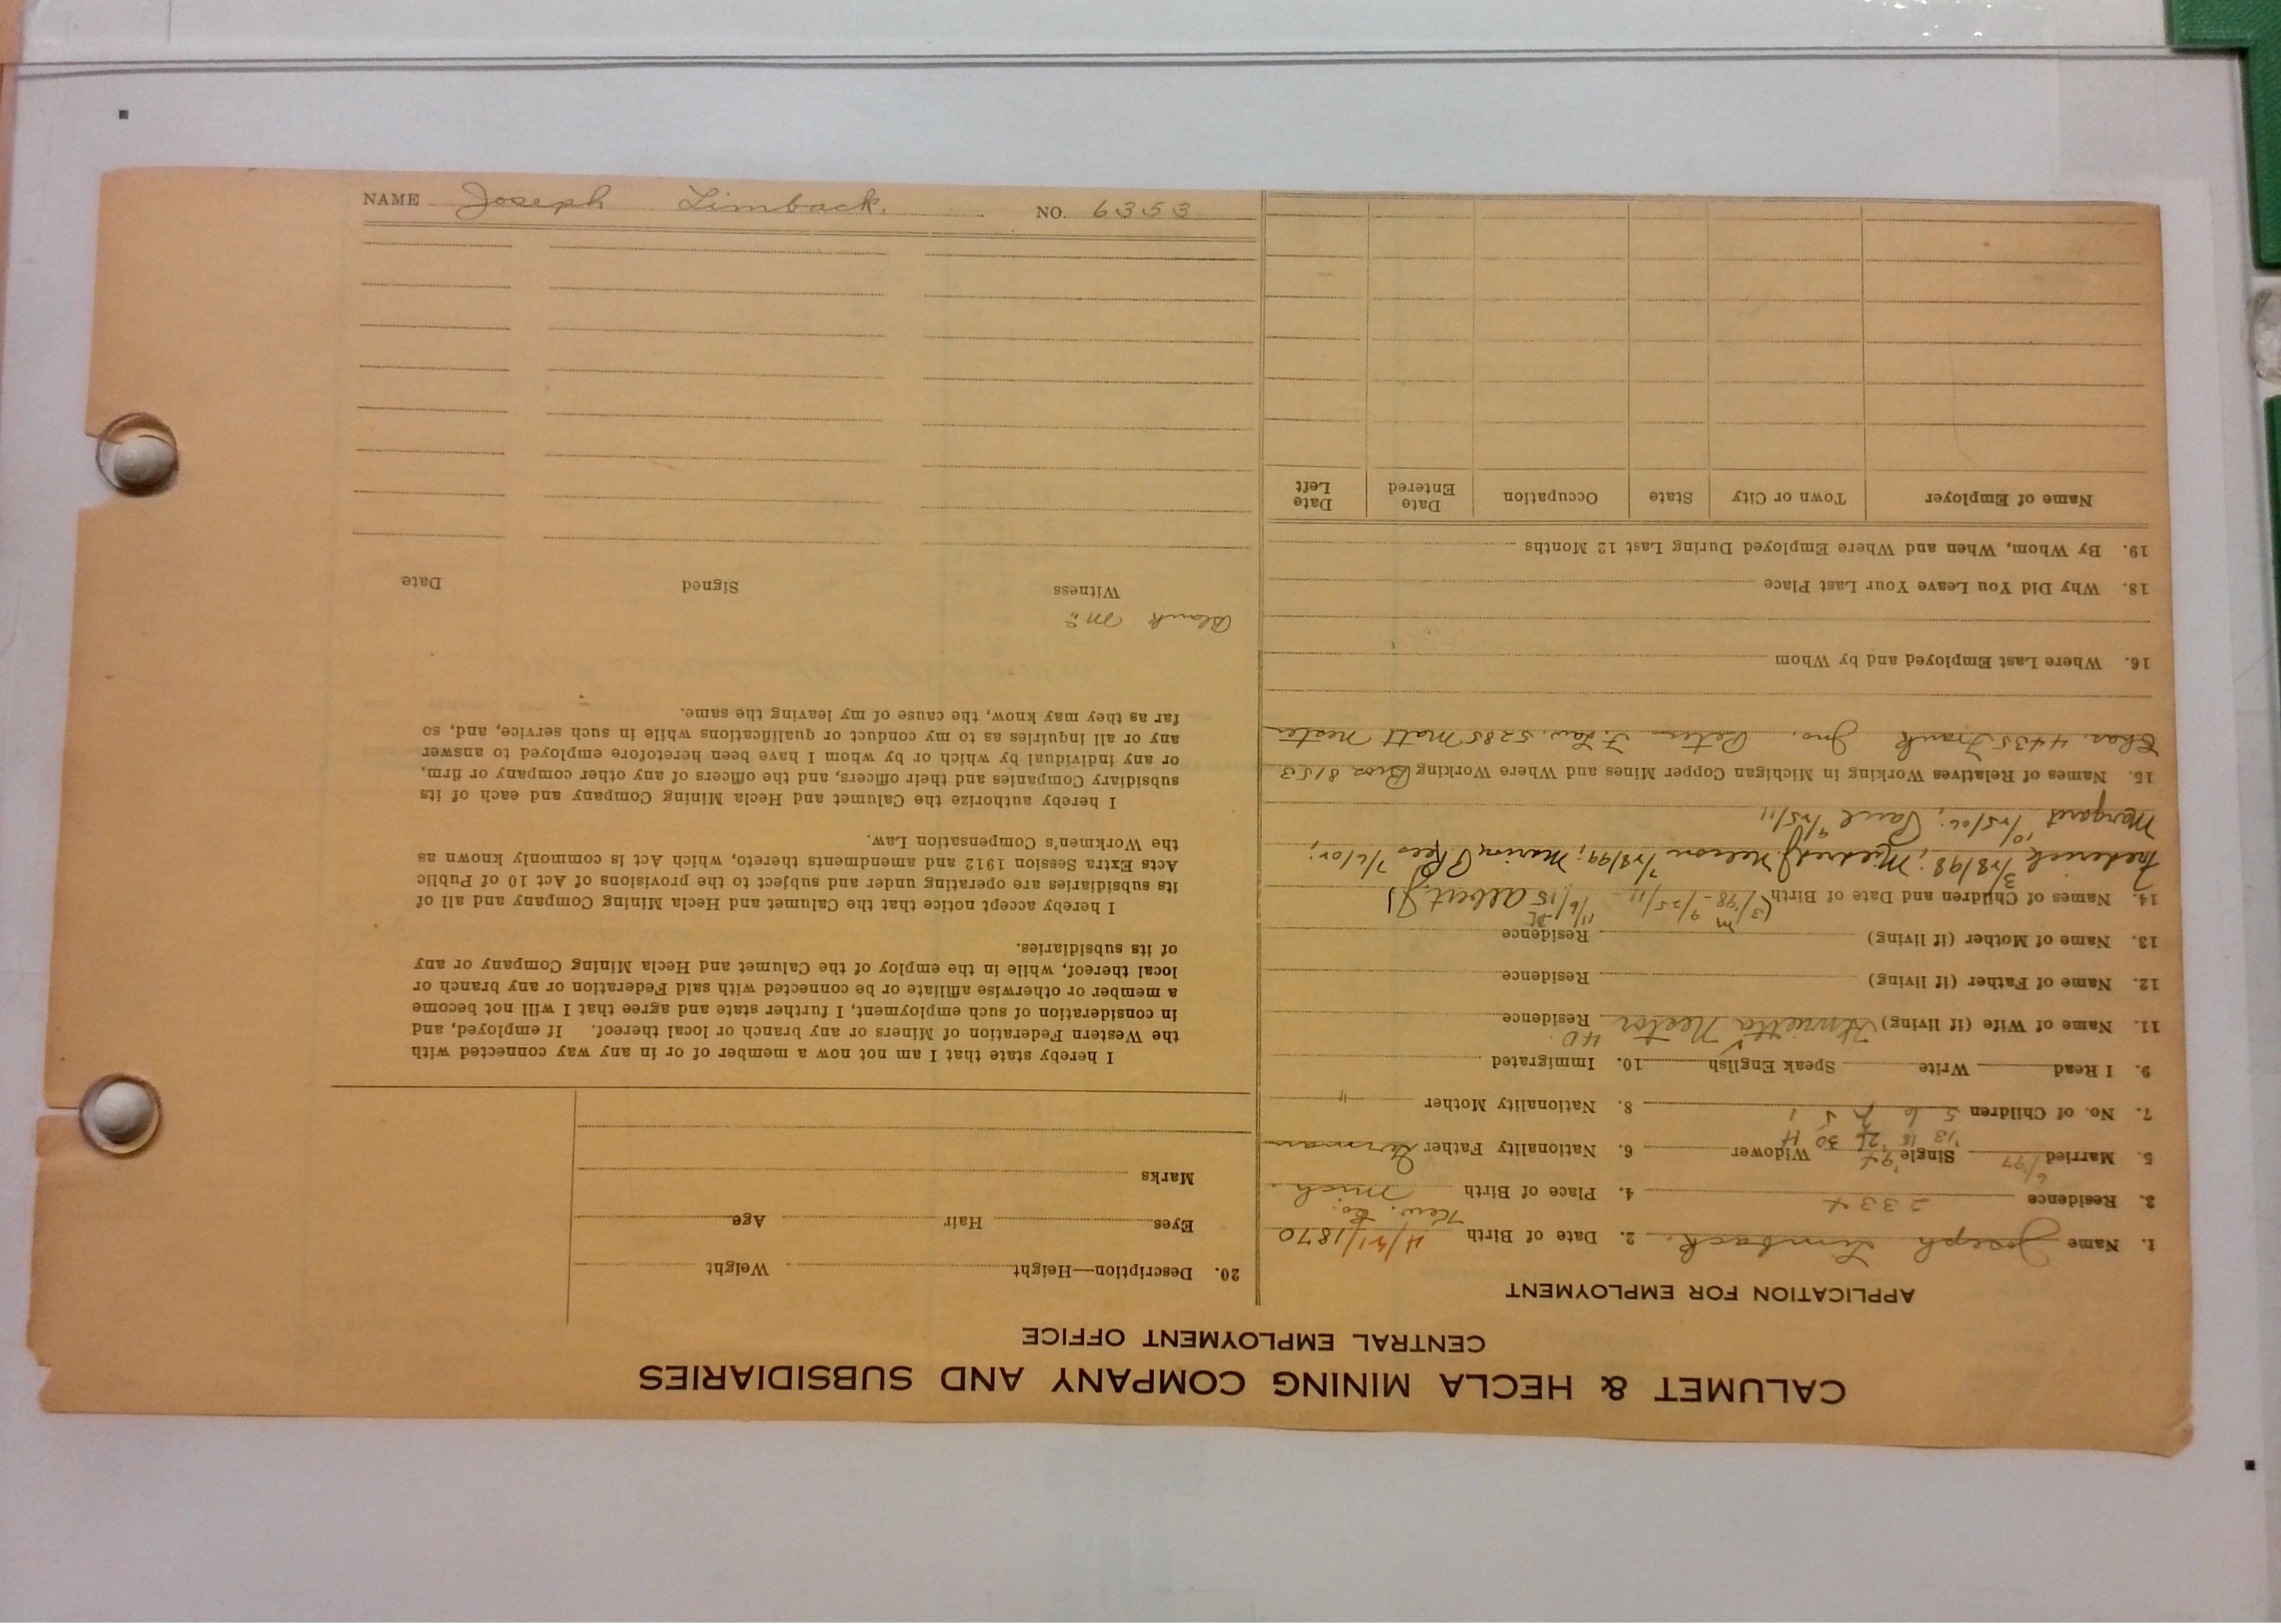 CALUMET & HECLA MINING COMPANY AND SUBSIDIARIES
CENTRAL EMPLOYMENT OFFICE
APPLICATION FOR EMPLOYMENT
1. Name Joseph Limback. 2. Date of Birth /1870
Kew. Co.
3. Residence 2334 4. Place of Birth Mich.
5. Married 6/97 Single Widower 6. Nationality Father German
'13 18 '26 30
7. No. of Children 5 6 5 1 8. Nationality Mother "
9. I Read Write Speak English 10. Immigrated
11. Name of Wife (if living) Henrietta Nestor 40. Residence
12. Name of Father (if living) Residence
13. Name of Mother (if living) Residence
14. Names of Children and Date of Birth (3/98 - 9/25/11 - 11/6/15 Albert J)
Frederick 3/28/98; Mildred Nelson 7/28/99; Marion Rees
Margaret 10/25/06; Paul 9/25/11
15. Names of Relatives Working in Michigan Copper Mines and Where Working Bros 8153
Chas. 4435 Frank Jno. Peter F. Law. 5285 Matt Nestor
16. Where Last Employed and by Whom
18. Why Did You Leave Your Last Place
19. By Whom, When and Where Employed During Last 12 Months
Name of Employer Town or City State Occupation Date Entered Date Left
20. Description—Height Weight
Eyes Hair Age
Marks
I hereby state that I am not now a member of or in any way connected with
the Western Federation of Miners or any branch or local thereof. If employed, and
in consideration of such employment, I further state and agree that I will not become
a member or otherwise affiliate or be connected with said Federation or any branch or
local thereof, while in the employ of the Calumet and Hecla Mining Company or any
of its subsidiaries.
I hereby accept notice that the Calumet and Hecla Mining Company and all of
its subsidiaries are operating under and subject to the provisions of Act 10 of Public
Acts Extra Session 1912 and amendments thereto, which Act is commonly known as
the Workmen's Compensation Law.
I hereby authorize the Calumet and Hecla Mining Company and each of its
subsidiary Companies and their officers, and the officers of any other company or firm,
or any individual by which or by whom I have been heretofore employed to answer
any or all inquiries as to my conduct or qualifications while in such service, and, so
far as they may know, the cause of my leaving the same.
Witness Signed Date
NAME Joseph Limback. NO. 6353